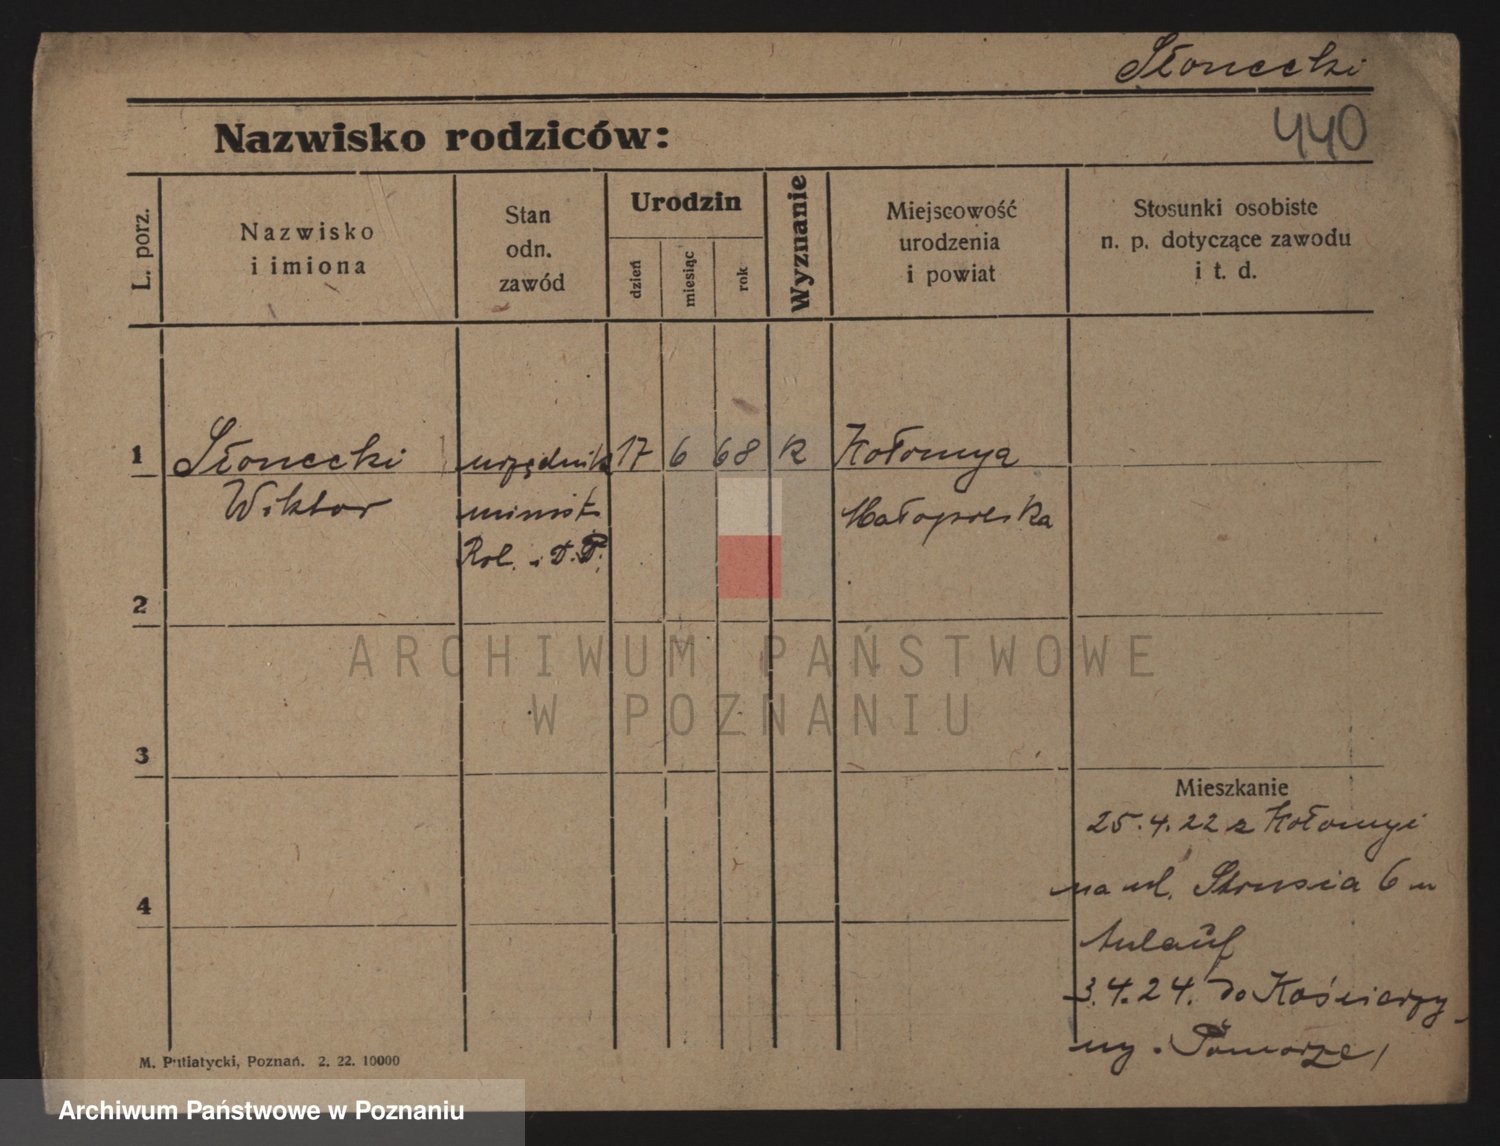 Słonecki
Nazwisko rodziców:
440
L. porz.
Nazwisko
i imiona
Stan
odn.
zawód
Urodzin
dzień
miesiąc
rok
Wyznanie
Miejscowość
urodzenia
i powiat
Stosunki osobiste
n. p. dotyczące zawodu
i t. d.
1 Słonecki urzędnik 17 6 68 k Kołomya
Wiktor minist. Małopolska
Rol. i D. P.
2
ARCHIWUM PAŃSTWOWE
W POZNANIU
3
Mieszkanie
25.4.22 z Kołomyi
4
na ul. Strusia 6 u
Aulauf
3.4.24. do Kościerzy-
ny. Pomorze
M. Putiatycki, Poznań. 2. 22. 10000
Archiwum Państwowe w Poznaniu